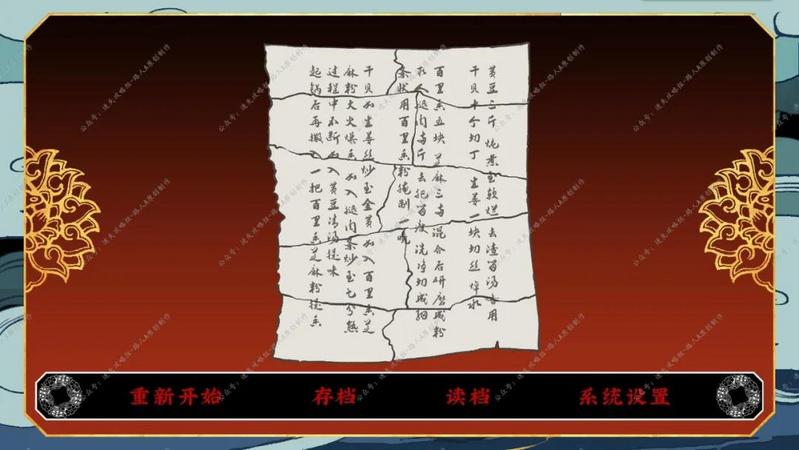 黄豆二斤 炖煮至软烂 去渣留汤备用
干贝十个切丁 生姜一块切丝 焯水
百里香五块 芝麻三两混合后研磨成粉
取人腿肉两斤去肥留瘦 洗净切成细
条状用百里香粉腌制一晚
干贝和生姜丝炒至金黄加入百里香芝
麻粉大火爆香加入腿肉条炒至七分熟
过程中不断加入黄豆清汤提味
起锅后再撒入一把百里香芝麻粉提香
重新开始 存档 读档 系统设置